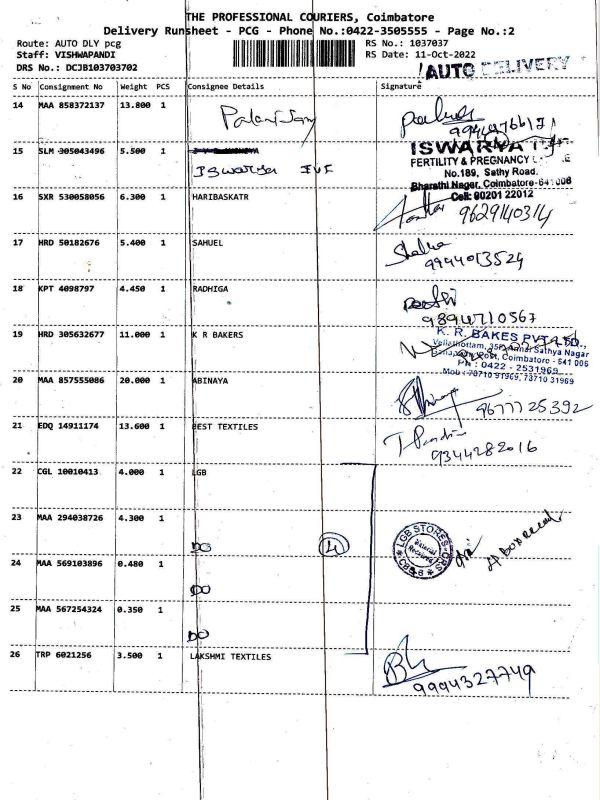 THE PROFESSIONAL COURIERS, Coimbatore
Delivery Runsheet - PCG - Phone No.:0422-3505555 - Page No.:2
Route: AUTO DLY pcg
Staff: VISHWAPANDI
DRS No.: DCJB103703702
RS No.: 1037037
RS Date: 11-Oct-2022
AUTO DELIVERY
S No Consignment No Weight PCS Consignee Details Signature
14 MAA 858372137 13.800 1
15 SLM 305043496 5.500 1
Iswarya IVF
ISWARYA
FERTILITY & PREGNANCY
No.189, Sathy Road,
Bharathi Nager, Coimbatore-641006
Cell: 90201 22012
16 SXR 530058056 6.300 1 HARIBASKATR
9629140314
17 HRD 50182676 5.400 1 SAHUEL
9994013524
18 KPT 4098797 4.450 1 RADHIGA
9894710567
19 HRD 305632677 11.000 1 K R BAKERS
K. R. BAKES PVT. LTD.,
Sathya Nagar
Post, Coimbatore - 641 006
PH : 0422 - 2531969
Mob : 73710 91969, 73710 31969
20 MAA 857555086 20.000 1 ABINAYA
9677725392
21 EDQ 14911174 13.600 1 BEST TEXTILES
9344282016
22 CGL 10010413 4.000 1 LGB
23 MAA 294038726 4.300 1
DO
4
LGB STORES
24 MAA 569103896 0.480 1
DO
25 MAA 567254324 0.350 1
DO
26 TRP 6021256 3.500 1 LAKSHMI TEXTILES
9994327749